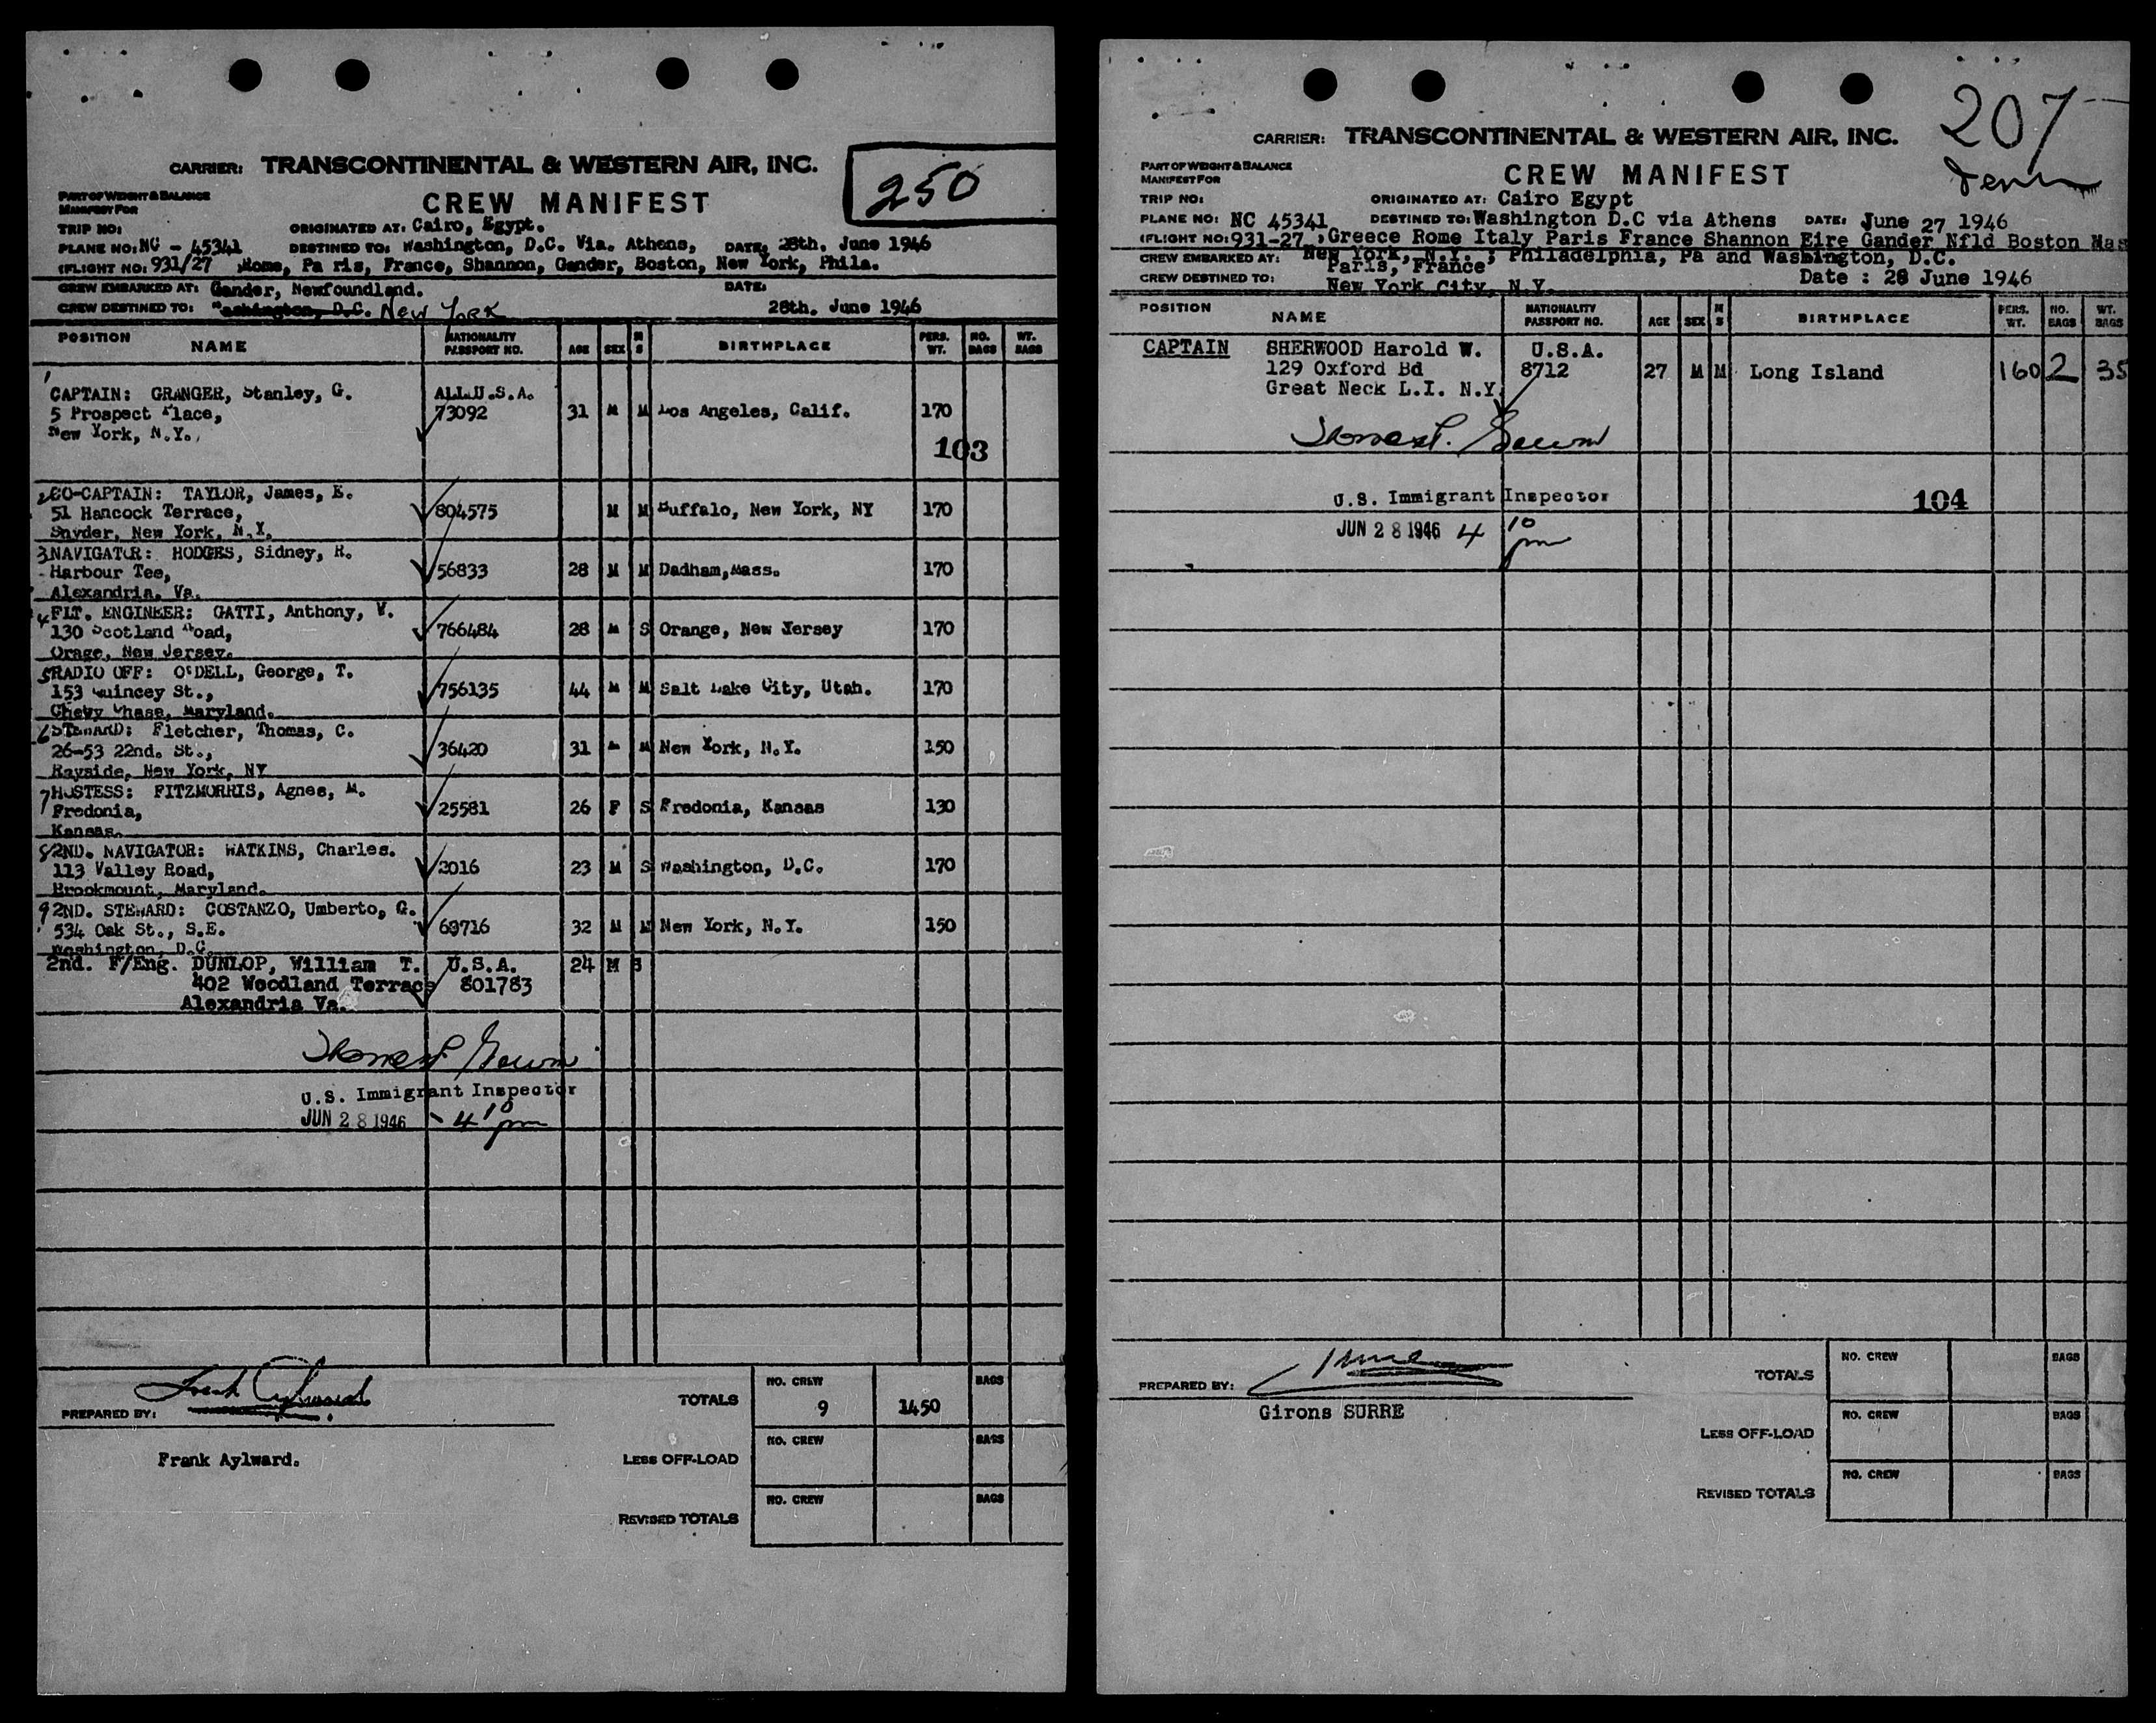 250
CARRIER: TRANSCONTINENTAL & WESTERN AIR, INC.
PART OF WEIGHT & BALANCE
MANIFEST FOR
CREW MANIFEST
TRIP NO: ORIGINATED AT: Cairo, Egypt.
PLANE NO: NC - 45341 DESTINED TO: Washington, D.C. Via. Athens, DATE: 28th. June 1946
(FLIGHT NO: 931/27 ,Rome, Pa ris, France, Shannon, Gander, Boston, New York, Phila.
CREW EMBARKED AT: Gander, Newfoundland. DATE:
CREW DESTINED TO: Washington, D.C. New York 28th. June 1946
POSITION NAME NATIONALITY PASSPORT NO. AGE SEX M S BIRTHPLACE PERS. WT. NO. BAGS WT. BAGS
1
CAPTAIN: GRANGER, Stanley, G. ALL U.S.A.
5 Prospect Place, 73092 31 M M Los Angeles, Calif. 170
New York, N.Y.,
103
2 CO-CAPTAIN: TAYLOR, James, E.
51 Hancock Terrace, 804575 M M Buffalo, New York, NY 170
Snyder, New York, N.Y.
3 NAVIGATOR: HODGES, Sidney, R.
Harbour Tee, 56833 28 M M Dadham,Mass. 170
Alexandria, Va.
4 FLT. ENGINEER: GATTI, Anthony, V.
130 Scotland Road, 766484 28 M S Orange, New Jersey 170
Orage, New Jersey.
5 RADIO OFF: O'DELL, George, T.
153 Quincey St., 756135 44 M M Salt Lake City, Utah. 170
Chevy Chase, Maryland.
6 STEWARD: Fletcher, Thomas, C.
26-53 22nd. St., 36420 31 M M New York, N.Y. 150
Bayside, New York, NY
7 HOSTESS: FITZMORRIS, Agnes, M.
Fredonia, 25581 26 F S Fredonia, Kansas 130
Kansas.
8 2ND. NAVIGATOR: WATKINS, Charles.
113 Valley Road, 2016 23 M S Washington, D.C. 170
Brookmount, Maryland.
9 2ND. STEWARD: COSTANZO, Umberto, G.
534 Oak St., S.E. 69716 32 M M New York, N.Y. 150
Washington, D.C.
2nd. F/Eng. DUNLOP, William T. U.S.A. 24 M S
402 Woodland Terrace 801783
Alexandria Va.
U.S. Immigrant Inspector
JUN 28 1946 - 4 10 pm
Frank Aylward
PREPARED BY:
Frank Aylward.
TOTALS NO. CREW 9 1450 BAGS
LESS OFF-LOAD NO. CREW BAGS
REVISED TOTALS NO. CREW BAGS
207
CARRIER: TRANSCONTINENTAL & WESTERN AIR, INC.
PART OF WEIGHT & BALANCE
MANIFEST FOR
CREW MANIFEST
TRIP NO: ORIGINATED AT: Cairo Egypt
PLANE NO: NC 45341 DESTINED TO: Washington D.C via Athens DATE: June 27 1946
(FLIGHT NO: 931-27 ,Greece Rome Italy Paris France Shannon Eire Gander Nfld Boston Mas
New York, N.Y. ; Philadelphia, Pa and Washington, D.C.
CREW EMBARKED AT: Paris, France
CREW DESTINED TO: New York City, N.Y. Date : 28 June 1946
POSITION NAME NATIONALITY PASSPORT NO. AGE SEX M S BIRTHPLACE PERS. WT. NO. BAGS WT. BAGS
CAPTAIN SHERWOOD Harold W. U.S.A.
129 Oxford Bd 8712 27 M M Long Island 160 2 35
Great Neck L.I. N.Y.
U.S. Immigrant Inspector
104
JUN 28 1946 4 10 pm
PREPARED BY:
Girons SURRE
TOTALS NO. CREW BAGS
LESS OFF-LOAD NO. CREW BAGS
REVISED TOTALS NO. CREW BAGS